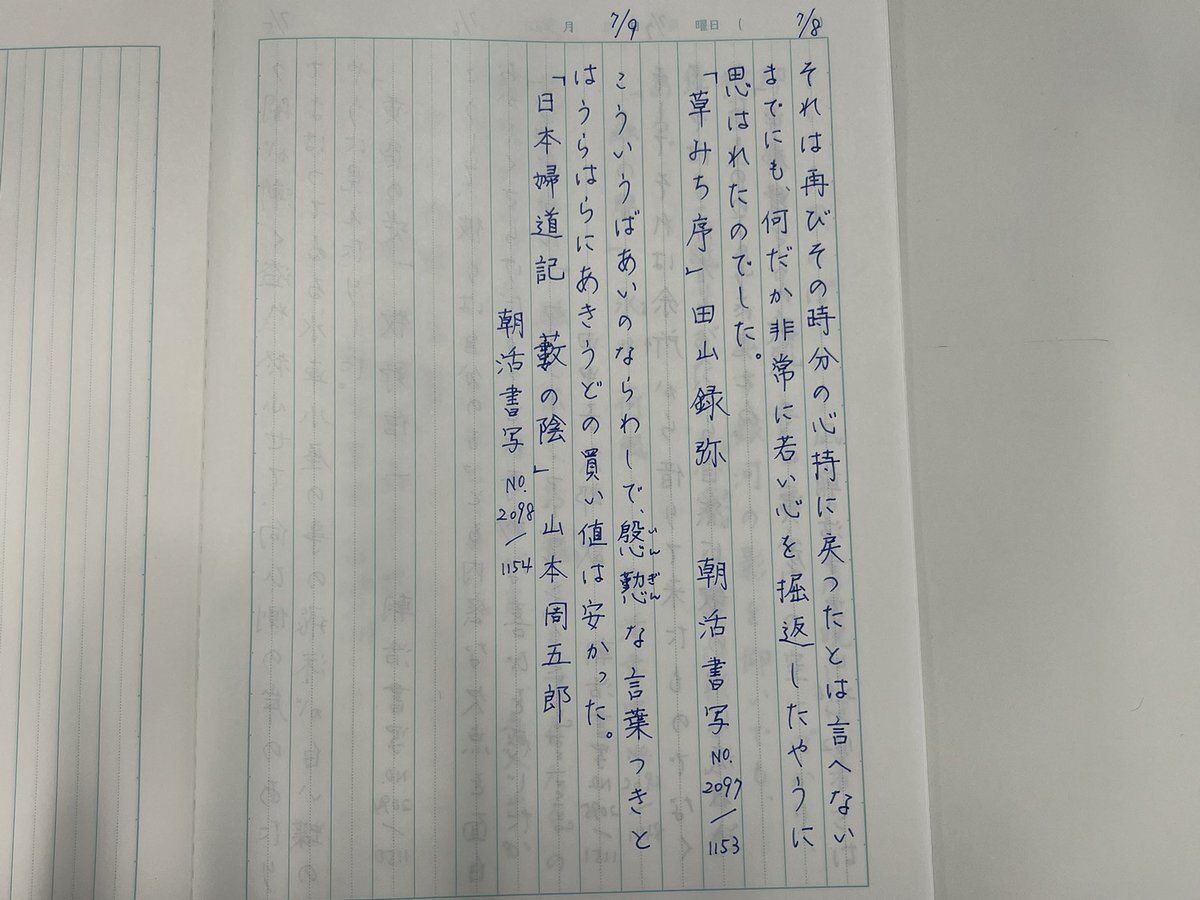 7/8
それは再びその時分の心持に戻つたとは言へない
までにも、何だか非常に若い心を掘返したやうに
思はれたのでした。
「草みち序」田山録弥 朝活書写 NO.2097/1153
7/9
こういうばあいのならわしで、慇懃な言葉つきと
いんぎん
はうらはらにあきうどの買い値は安かった。
「日本婦道記 藪の陰」山本周五郎
朝活書写 NO.2098/1154
月
曜日 (